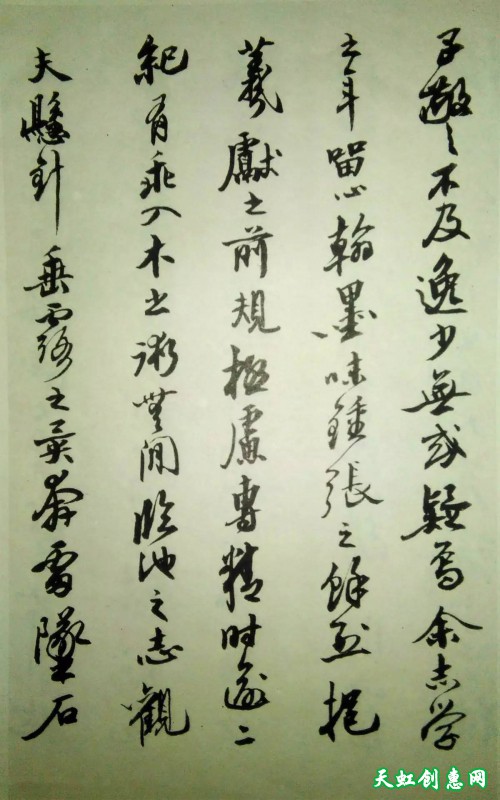 子敬之不及逸少無或疑焉余志学
之年留心翰墨味鍾張之餘烈挹
羲獻之前規極慮專精时逾二
紀有乖入木之術無間臨池之志觀
夫懸針垂露之异奔雷墜石
天虹创惠网